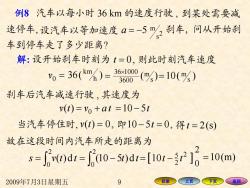 例8 汽车以每小时 36 km 的速度行驶, 到某处需要减
速停车, 设汽车以等加速度 a = −5 m/s² 刹车, 问从开始刹
车到停车走了多少距离?
解: 设开始刹车时刻为 t = 0, 则此时刻汽车速度
v₀ = 36(km/h) = 36×1000/3600 (m/s) = 10(m/s)
刹车后汽车减速行驶, 其速度为
v(t) = v₀ + at = 10 − 5t
当汽车停住时, v(t) = 0, 即 10 − 5t = 0, 得 t = 2(s)
故在这段时间内汽车所走的距离为
s = ∫₀² v(t)dt = ∫₀² (10 − 5t)dt = [10t − 5/2 t²]₀² = 10(m)
2009年7月3日星期五 9